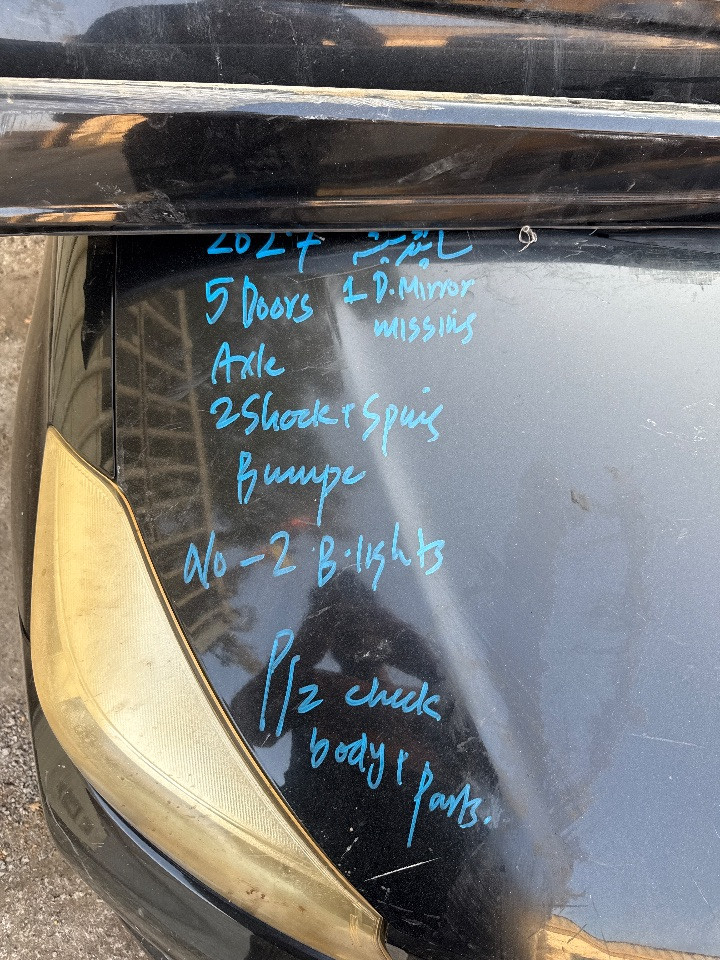 5 Doors 1 D. Mirror
missing
Axle
2 Shock + Spring
Bumpe
No - 2 B. lights
P/z check
body + Parts.